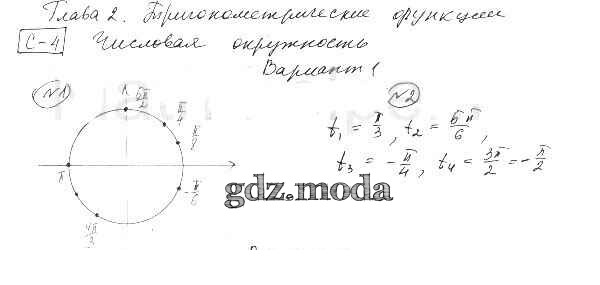 Глава 2. Тригонометрические функции
С-4 Числовая окружность
Вариант 1
№1
№2
5π/2
π/4
π/8
π
-π/6
4π/3
t₁ = π/3, t₂ = 5π/6,
t₃ = -π/4, t₄ = 3π/2 = -π/2
gdz.moda